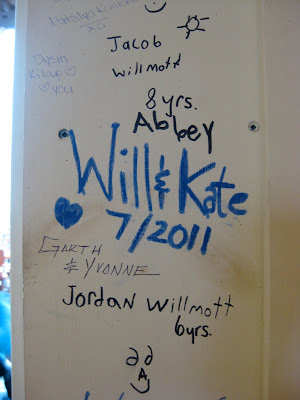 Jacob
Willmott
8 yrs.
Abbey
Will & Kate
7/2011
GARTH
& YVONNE
Jordan Willmott
6yrs.
A